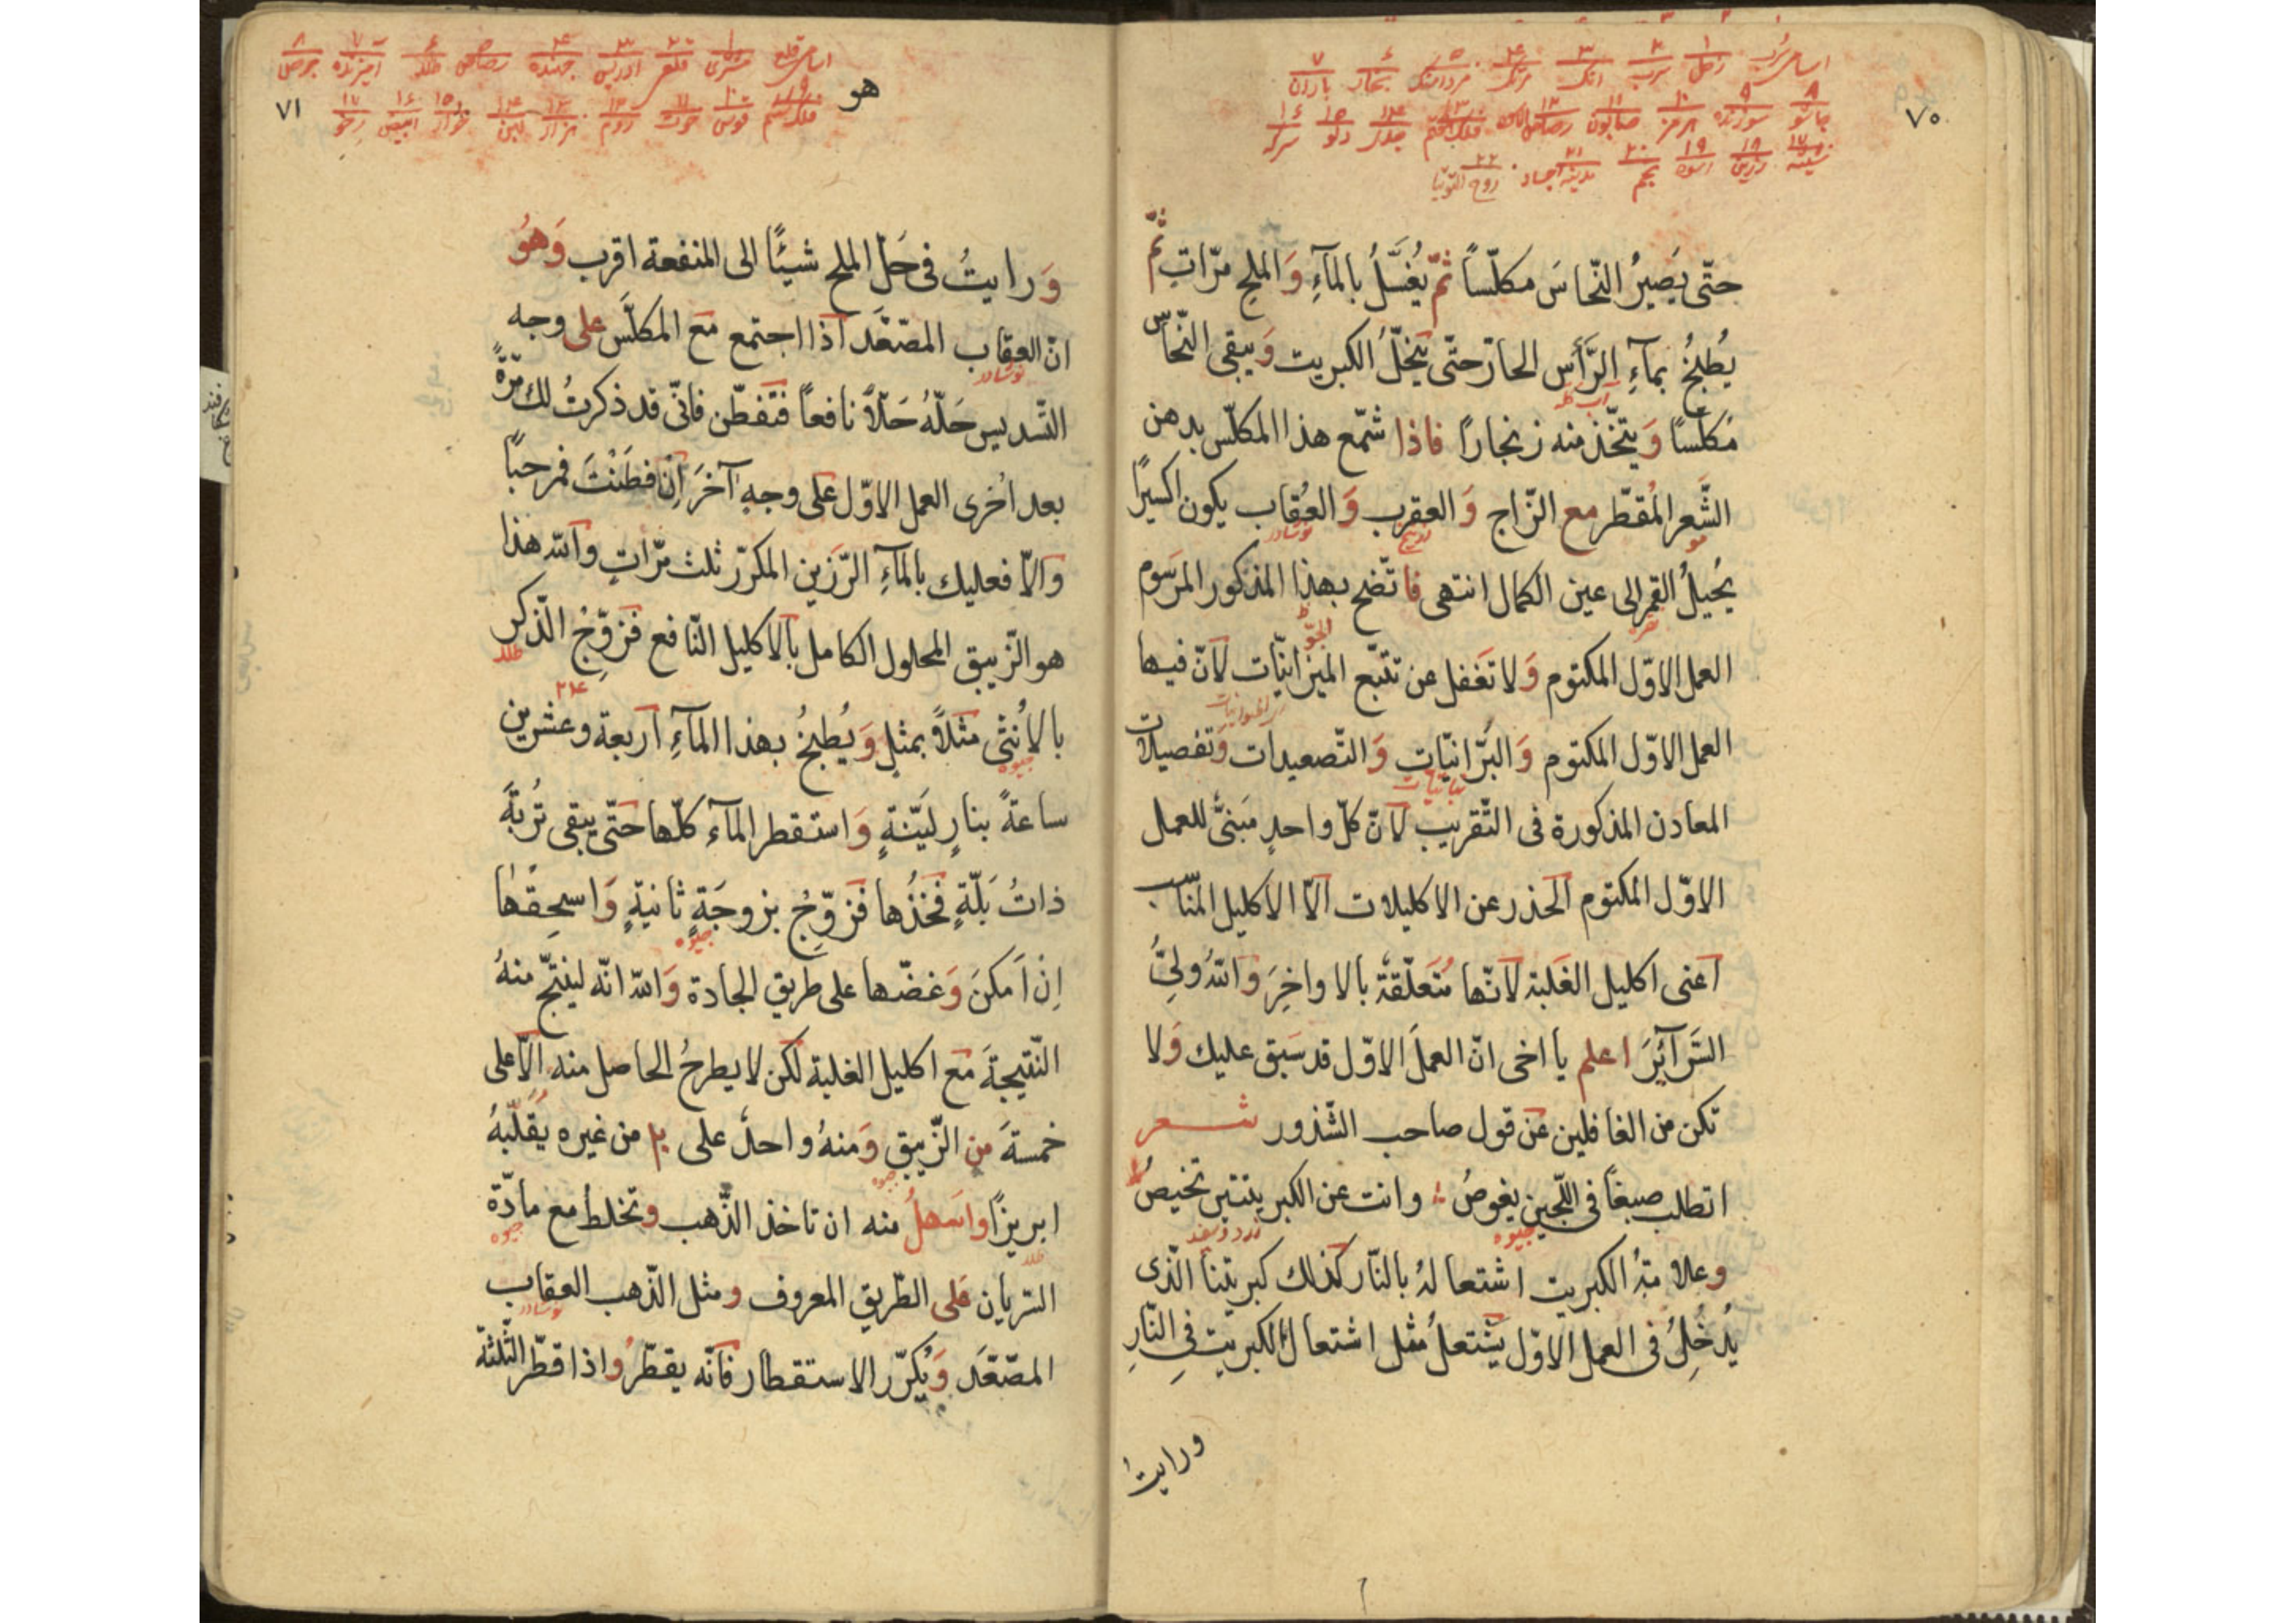 ٧٠
اسامی سرب ١ زحل ٢ سرب ٣ انک ۴ مرتک ۵ مرداسنک ۶ بخار ٧ باران
٨ ٩ سوزنده ١٠ هرمز ١١ صابون ١٢ رصاص ١٣ ١۴ ١۵ دلو ١۶ سرکه
١٧ ١٨ زرین ١٩ اسود ٢٠ ٢١ مدینه اجساد ٢٢ روح التوتیا
حتّى يَصيرُ النّحاسَ مكلّسًا ثمّ يُغسَّلُ بالمآءِ وَ الملح مرّاتٍ ثمّ
يُطبخُ بمآءِ الرَّأَس الحارّ حتّى يَنحلّ الكبريت وَ يبقى النّحاس
مكلّسًا وَ يتّخذ منه زنجارًا فاذا شمّع هذا المكلّس بدهن
الشَّعر المُقطّر مع الزّاج وَ العقرب وَ العُقاب يكون اكسيرًا
نوشادر
يُحيلُ القمر الى عين الكمال انتهى فاتّضح بهذا المذكور المرسَوم
العمل الاوّل المكتوم وَ لا تَغفل عن تتبّع الميزانيّات لانّ فيها
العمل الاوّل المكتوم وَ البرّانيّات وَ التّصعيدات وَ تفصيلات
نباتيّات
المعادن المذكورة فى التّقريب لانّ كلّ واحدٍ مَبنىٌّ للعمل
الاوّل المكتوم الحذر عن الاكليلات الّا الاكليل المناسب
اعنى اكليل الغلبة لانّها مُتعلّقةٌ بالاواخِرَ وَ اللهُ ولىُّ
السَّرآئِرَ اعلم يا اخى انّ العملَ الاوّل قد سَبق عليك وَلا
تكن من الغافلين عَن قول صاحب الشّذور شعر
اتطلب صبغًا فى اللّجين يغوصُ وانت عن الكبريتتين تخيصُ
جيوه زرد و سفيد
وعلامتهُ الكبريت اشتعالهُ بالنّار كذلك كبريتنا الّذى
يُدخُلِ فى العمل الاوّل يشتعلُ مثل اشتعال الكبريت فى النّارِ
ورايتُ
٧١
هو
اسامی قلع ١ مشتری ٢ قلعی ٣ ادریس ۴ جهنده ۵ رصاص ۶ طلد ٧ آمیزنده ٨
٩ ١٠ قوس ١١ حوت ١٢ روم ١٣ هزار ١۴ لین ١۵ ١۶ ابیض ١٧ رخو
وَ رايتُ فى حَلّ الملح شيئًا الى المنفعة اقرب وَهوُ
انّ العقاب المصّعَّد اذا اجتمع مَع المكلَّس على وجه
نوشادر
التّسديس حَلّهُ حَلّاً نافعًا فتَفطّن فانّى قد ذكرتُ لك مرّةً
بعد اخرى العمل الاوّل عَلى وجهٍ آخرَ اِنْ فطَنْتَ فمرحبًا
وَالّا فعليك بالمآءِ الرّزين المكرّر ثلث مرّاتٍ والله هذا
هو الزّيبق المحلول الكامل بالاكليل النّافع فزوّجُ الذّكر
بالاُنثى مثلاً بمثلٍ وَ يُطبخُ بهذا المآءِ اربعة وعشرين
جيوه
ساعةً بنارٍ ليّنةٍ وَ استقطر المآء كلّها حتّى يبقى تُربةَ
ذاتُ بَلّةٍ فخذُها فزوّجُ بزوجَةٍ ثانيةٍ وَ اسحقها
جيوه
اِنْ اَمكنَ وَ غضّها على طريق الجادة وَ الله انّه لينتجّ منهُ
النّتيجةَ مَع اكليل الغلبة لكن لا يطرحُ الحاصل منه الّا على
خمسةَ من الزّيبق وَ منهُ واحدٌ على ٢٠ من غيره يُقَلّبهُ
جيوه
ابريزًا واسَهلُ منه ان تاخذ الذّهب وتخلط مع مادّة
جيوه
السّريان عَلى الطّريق المعروف ومثل الذّهب العقاب
نوشادر
المصّعَّد وَ يُكرّر الاستقطار فانّه يقطّرُ واذا قطّر الثّلثة